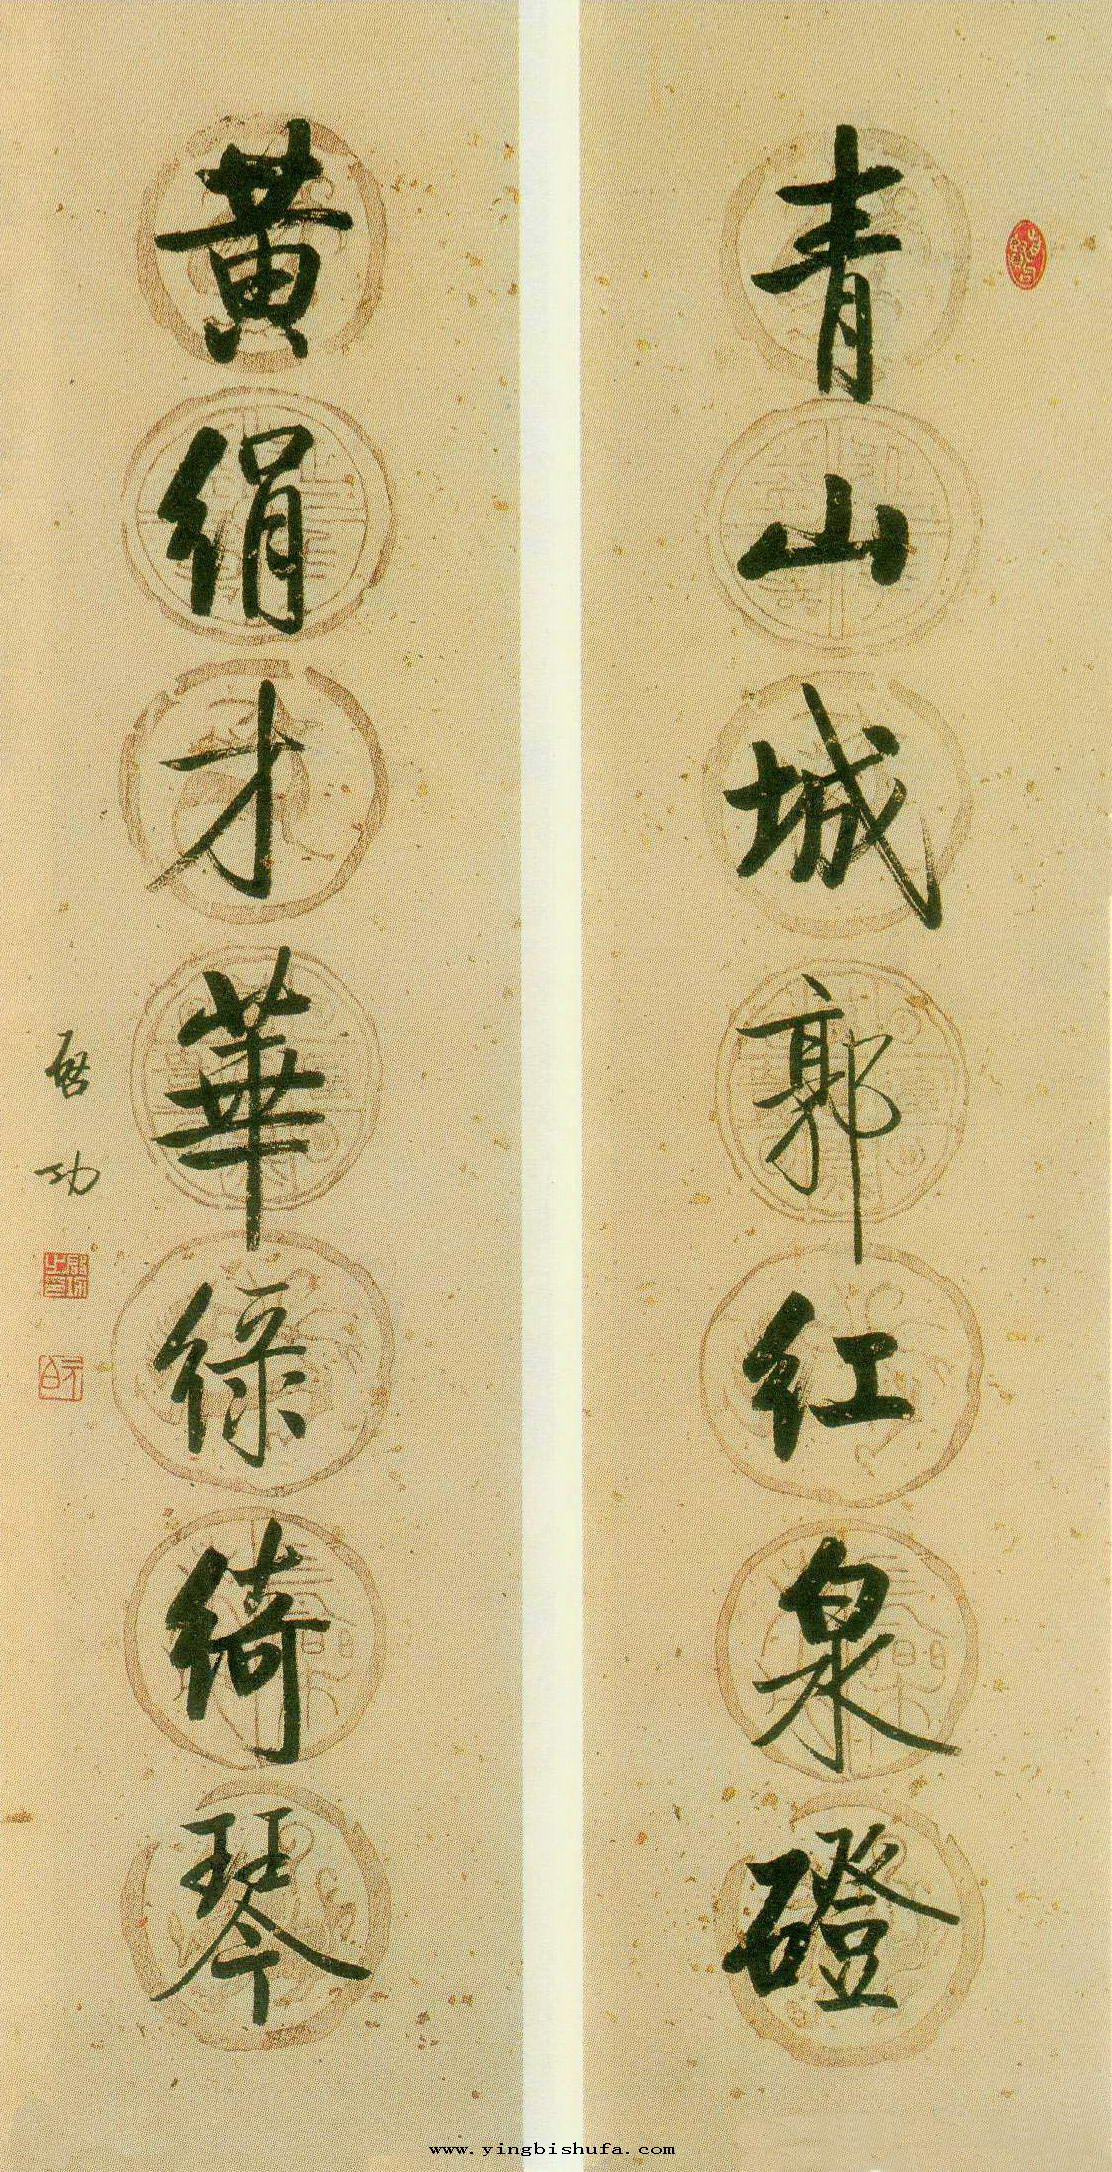 青山城郭红泉磴
黃絹才華綠綺琴
啟功
www.yingbishufa.com